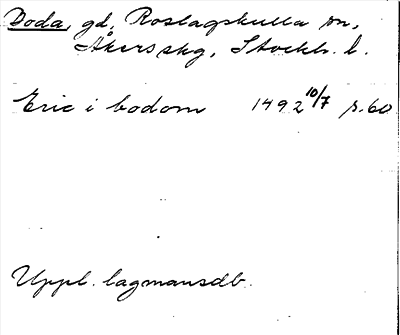 Boda, gd, Roslagskulla sn,
Åkers skg, Stockh. l.
Eric i bodom 1492 10/7 s. 60
Uppl. lagmansdb.